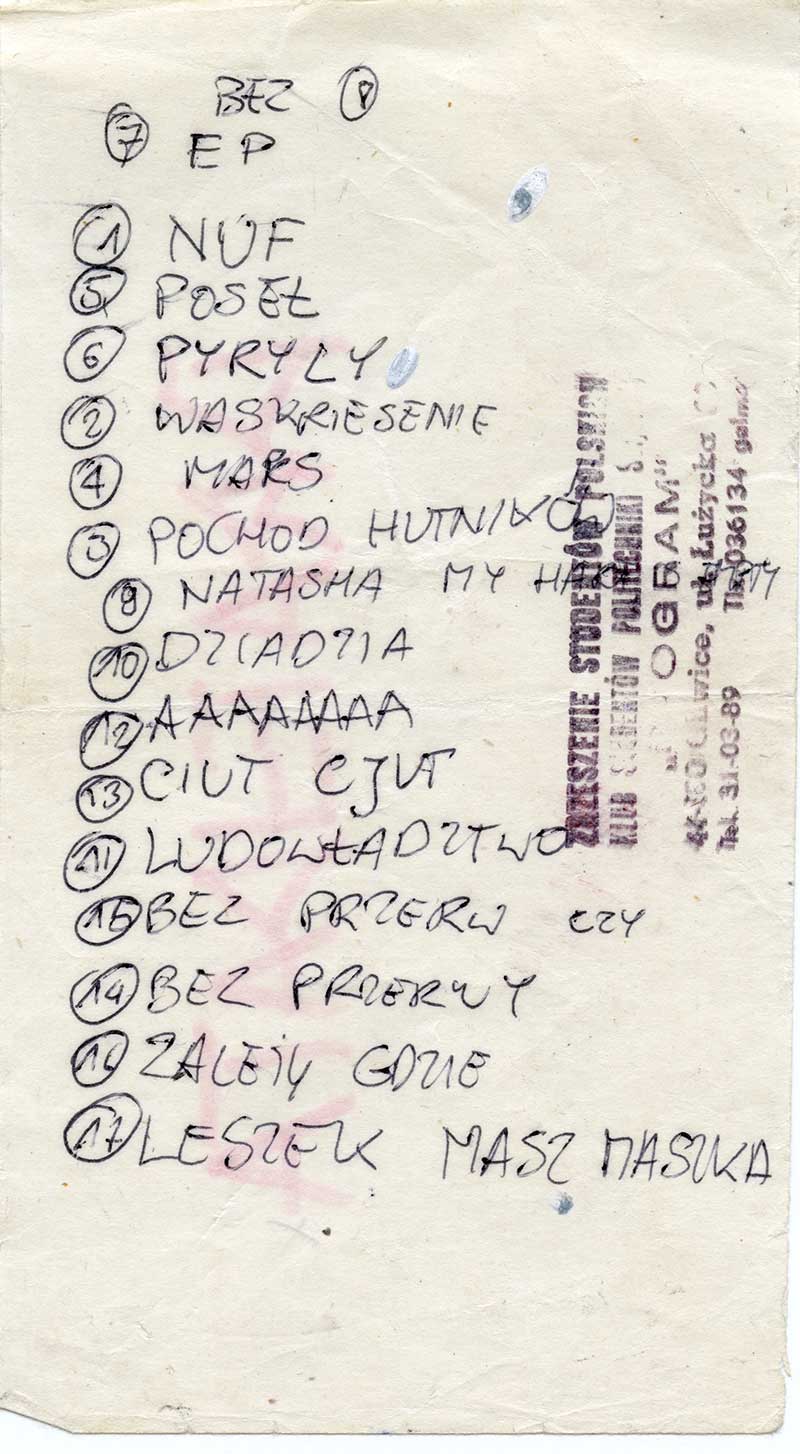 BEZ 8
7 EP
1 NUF
5 POSEŁ
6 PYRYŁY
2 WASKRIESENIE
4 MARS
3 POCHOD HUTNIKÓW
9 NATASHA MY
10 DZIADZIA
12 AAAAAAAA
13 CIUT CJUT
11 LUDOWŁADZTWO
15 BEZ PRZERW CZY
14 BEZ PRZERWY
16 ZALEŻY GDZIE
17 LESZEK MASZ MASZKA
ZRZESZENIE STUDENTÓW POLSKICH
KLUB STUDENTÓW POLITECHNIKI
OGRAM"
ul. Łużycka
Tel. 31-03-89 Tlx. 036134